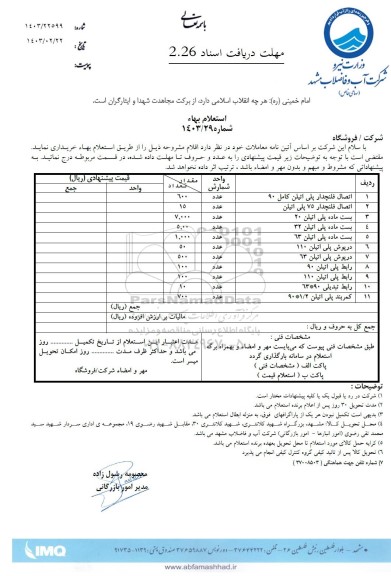 باسمه تعالی
شماره: ۱۴۰۳/۲۲۵۹۹
تاریخ: ۱۴۰۳/۰۲/۲۲
پیوست:
مهلت دریافت اسناد 2.26
وزارت نیرو
شرکت آب و فاضلاب مشهد
(سهامی خاص)
امام خمینی (ره): هر چه انقلاب اسلامی دارد، از برکت مجاهدت شهدا و ایثارگران است.
استعلام بهاء
شماره ۱۴۰۳/۲۹
شرکت / فروشگاه
با سلام این شرکت بر اساس آئین نامه معاملات خود در نظر دارد اقلام مشروحه ذیل را از طریق استعلام بهاء خریداری نماید.
مقتضی است با توجه به توضیحات زیر قیمت پیشنهادی را به عدد و حروف تا مهلت داده شده، در قسمت مربوطه درج نمائید. به
پیشنهاداتی که مشروط و مبهم و بدون مهر و امضاء باشد، ترتیب اثر داده نخواهد شد.
ردیف واحد شمارش مقدار / تعداد قیمت پیشنهادی (ریال)
واحد جمع
۱ اتصال فلنجدار پلی اتیلن کامل ۹۰ عدد ۶۰۰
۲ اتصال فلنجدار ۷۵ پلی اتیلن عدد ۱۵
۳ بست ماده پلی اتیلن ۲۰ عدد ۷,۰۰۰
۴ بست ماده پلی اتیلن ۳۲ عدد
۵ بست ماده پلی اتیلن ۶۳ عدد ۱,۰۰۰
۶ درپوش پلی اتیلن ۱۱۰ عدد ۵۰
۷ درپوش پلی اتیلن ۶۳ عدد ۵۰۰
۸ رابط پلی اتیلن ۹۰ عدد ۱۰۰
۹ رابط پلی اتیلن ۱۱۰ عدد
۱۰ رابط تبدیلی ۹۰*۶۳ عدد ۱۰
۱۱ کمربند پلی اتیلن ۱/۲*۹۰ عدد ۷۰۰
جمع (ریال)
مالیات بر ارزش افزوده (ریال)
جمع کل به حروف و ریال :
مشخصات فنی :
طبق مشخصات فنی پیوست که می‌بایست مهر و امضاء و بهمراه برگه
استعلام در سامانه بارگذاری گردد
پاکت الف ( مشخصات فنی )
پاکت ب ( استعلام قیمت )
مدت اعتبار این استعلام از تاریخ تکمیل .......... روز
می باشد و حداکثر ظرف مدت .......... روز امکان تحویل
میسر است.
مهر و امضاء شرکت/فروشگاه
توضیحات :
۱) شرکت در رد یا قبول یک یا کلیه پیشنهادات مختار است.
۲) مدت تحویل ۲۰ روز پس از اعلام برنده استعلام می باشد.
۳) بدیهی است تکمیل نبودن هر یک از پاراگرافهای فوق، به منزله ابطال استعلام می باشد.
۵) کرایه حمل کالای مورد استعلام تا محل تحویل بعهده برنده استعلام می باشد.
۶) تحویل کالا پس از تائید کیفی گروه کنترل کیفی انجام می پذیرد
۷) شماره تلفن جهت هماهنگی ( ۳۷۰۰۸۵۰۳ )
معصومه رسول زاده
مدیر امور بازرگانی
ParsNamadData
IMQ
www.abfamashhad.ir